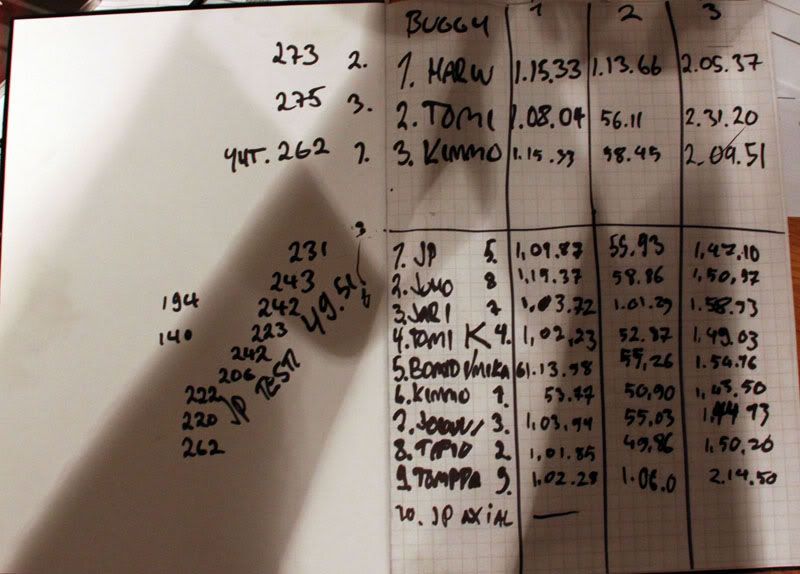 273 2.
275 3.
YHT. 262 1.
231
243
194 242
140 223
242
206
222
220
262
JP TESTI 49.51
BUGGY 1 2 3
1. HARW 1.15.33 1.13.66 2.05.37
2. TOMI 1.08.04 56.11 2.31.20
3. KIMMO 1.15.33 58.45 2.09.51
1. JP 5. 1,09.87 55.93 1,47.10
2. JUHO 8 1,19.37 58.86 1,50,97
3. JARI 7 1,03.72 1.01.29 1.58.93
4. TOMI K 4. 1,02,23 52.87 1,49.03
5. /MIKA 6 1.13.98 55,26 1.54.76
6. KIMMO 1. 53.47 50,90 1,45.50
7. 3. 1,03.94 55,03 1,44 93
8. TAPIO 2. 1,01.85 49,86 1,50.20
9. TOMPPA 9. 1.02.28 1.06.0 2.14.50
10. JP AXIAL —